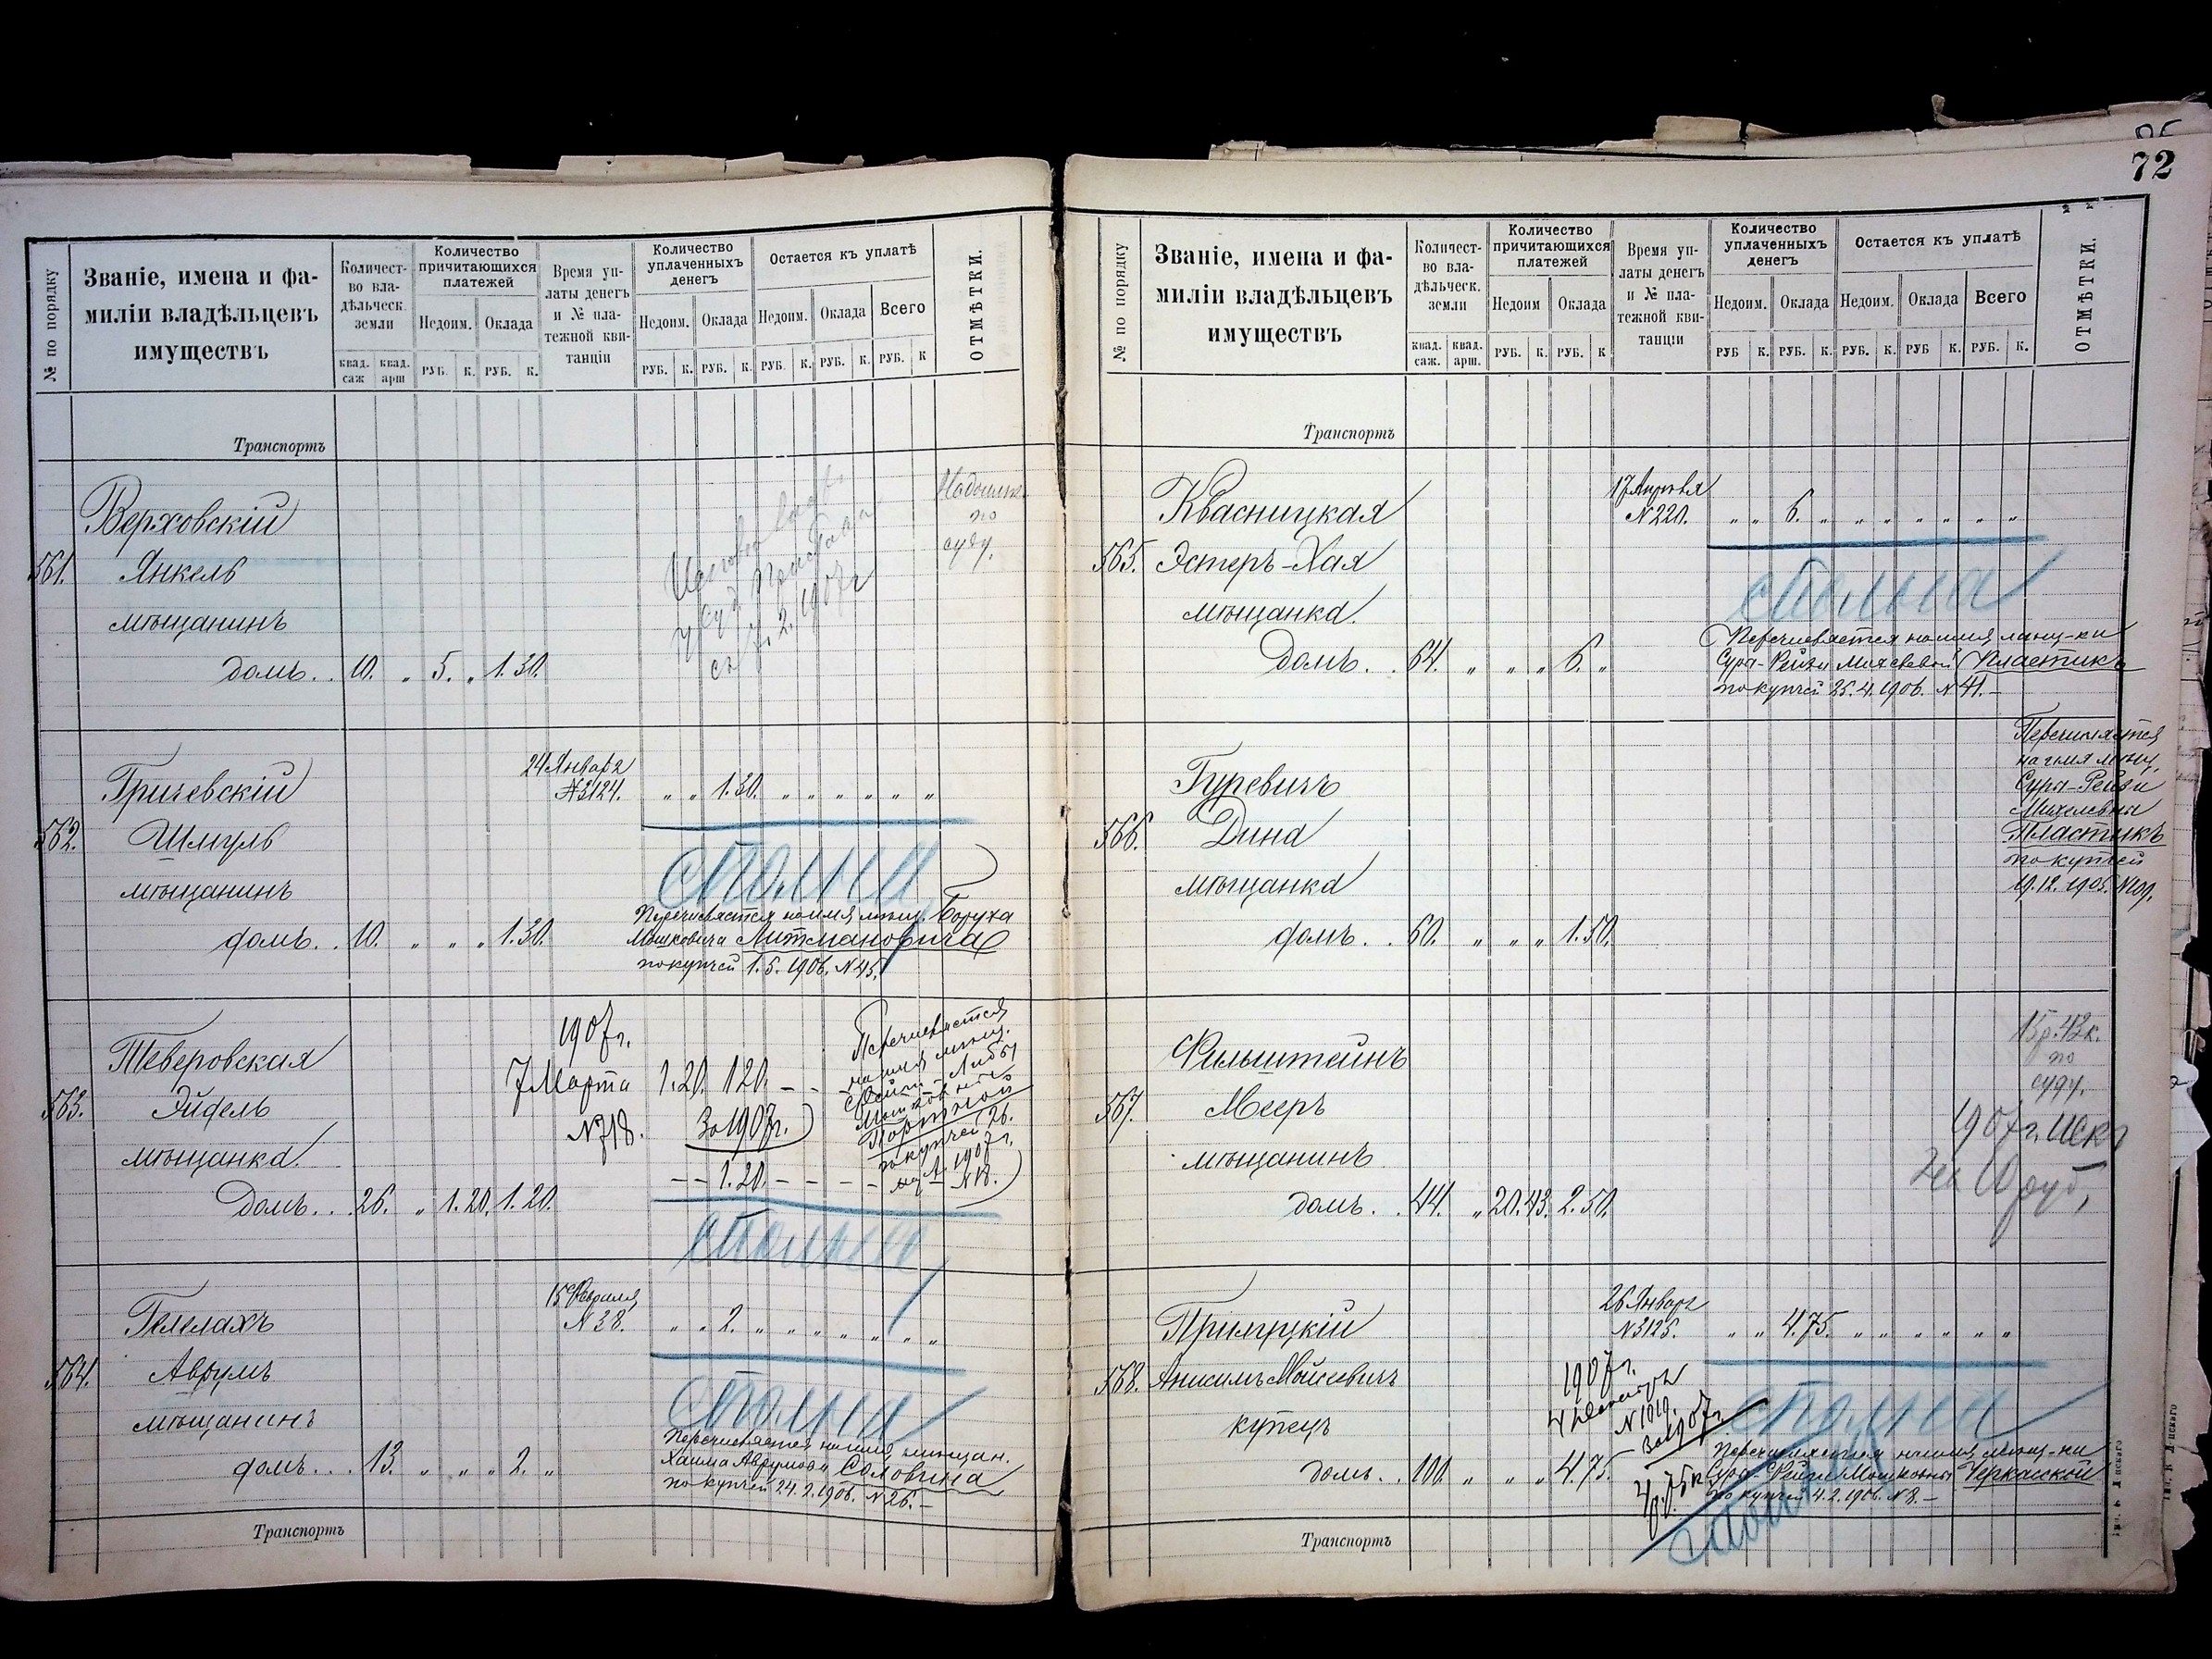 72
№ по порядку
Званіе, имена и фа-
миліи владѣльцевъ
имуществъ
Количест-
во вла-
дѣльческ.
земли
квад. саж
квад. арш
Количество
причитающихся
платежей
Недоим. Оклада
РУБ. К. РУБ. К.
Время уп-
латы денегъ
и № пла-
тежной кви-
танціи
Количество
уплаченныхъ
денегъ
Недоим. Оклада
РУБ. К. РУБ. К.
Остается къ уплатѣ
Недоим. Оклада Всего
РУБ. К. РУБ. К. РУБ. К
ОТМѢТКИ.
Транспортъ
Верховскій
561. Янкель
мѣщанинъ
домъ.. 10. „ 5. „ 1.30.
съ 2. 1907г
по
суду.
Гричевскій
24 Января
№3124. „ „ 1.30. „ „ „ „ „ „
562. Шмуль
сполна
мѣщанинъ
Перечисляется на имя мѣщ. Боруха
домъ.. 10. „ „ „ 1.30.
Мошковича Литмановича
по купчей 1.5.1906. №45.
1907г.
Теверовская
7 Марта 1.20. 1.20. – –
563. Эйдель
№718. За 1907г.
мѣщанка.
– – 1.20. – – – –
домъ.. 26. „ 1.20. 1.20.
Перечисляется
на имя мѣщ.
Портной
по купчей 26.
1907г.
№18.
сполна
Гелелахъ
15 Февраля
№38. „ „ 2. „ „ „ „ „ „ „
564. Аврумъ
сполна
мѣщанинъ
Перечисляется на имя мѣщан.
домъ... 13. „ „ „ 2. „
Хаима Аврумова Соловгина
по купчей 24.2.1906. №26.–
Транспортъ
№ по порядку
Званіе, имена и фа-
миліи владѣльцевъ
имуществъ
Количест-
во вла-
дѣльческ.
земли
квад. саж.
квад. арш.
Количество
причитающихся
платежей
Недоим Оклада
РУБ. К. РУБ. К
Время уп-
латы денегъ
и № пла-
тежной кви-
танціи
Количество
уплаченныхъ
денегъ
Недоим. Оклада
РУБ К. РУБ. К.
Остается къ уплатѣ
Недоим. Оклада Всего
РУБ. К. РУБ К. РУБ. К.
ОТМѢТКИ.
Транспортъ
Квасницкая
17 Апрѣля
№220. „ „ 6. „ „ „ „ „ „ „
565. Эстеръ-Хая
сполна
мѣщанка.
Перечисляется на имя мѣщ-ки
домъ.. 64. „ „ „ 6. „
Сура-Рейзи Пластикъ
по купчей 25.4.1906. №41.–
Гуревичъ
566. Дина
мѣщанка
домъ.. 60. „ „ „ 1.50.
Перечисляется
на имя мѣщ.
Сура-Рейзи
Михелевны
Пластикъ
по купчей
19.12.1905.
Фильштейнъ
567. Мееръ
мѣщанинъ
домъ.. 44. „ 20.43. 2.50.
15р.42к.
по
суду.
1907г. Искъ
на 10 руб,
Примуцкій
26 Января
№3125. „ „ 4.75. „ „ „ „ „ „
568. Анисимъ Мойсевичъ
купецъ
домъ.. 100. „ „ „ 4.75.
1907г.
4 Декабря
№1019.
За 1907г.
4р.75к
сполна
Перечисляется на имя мѣщ-ки
Сура-Рейзи Мошковны Черкасской
по купчей 4.2.1906. №8.–
сполна
Транспортъ